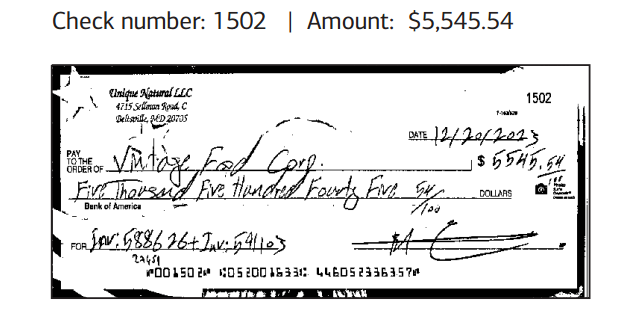 Check number: 1502 | Amount: $5,545.54
Unique Natural LLC
4715 Sellman Road, C
Beltsville, MD 20705
1502
DATE 12/20/2023
PAY
TO THE
ORDER OF Vintage Food Corp. $ 5545.54
Five Thousand Five Hundred Fourty Five 54/100 DOLLARS
Bank of America
FOR Inv: 588626+Inv: 591103
⑈001502⑈ ⑆052001633⑆ 446052336357⑈